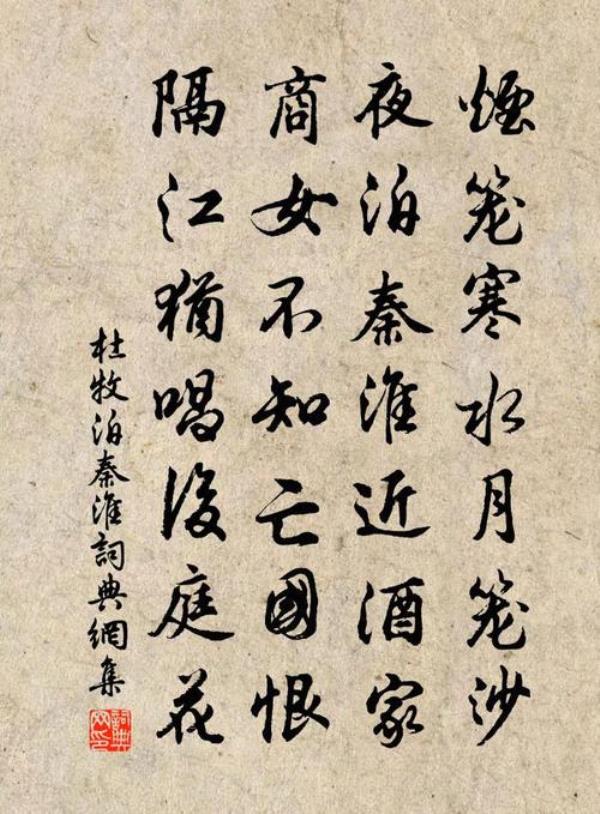 煙笼寒水月笼沙
夜泊秦淮近酒家
商女不知亡國恨
隔江猶唱後庭花
杜牧泊秦淮詞典網集
詞典网印